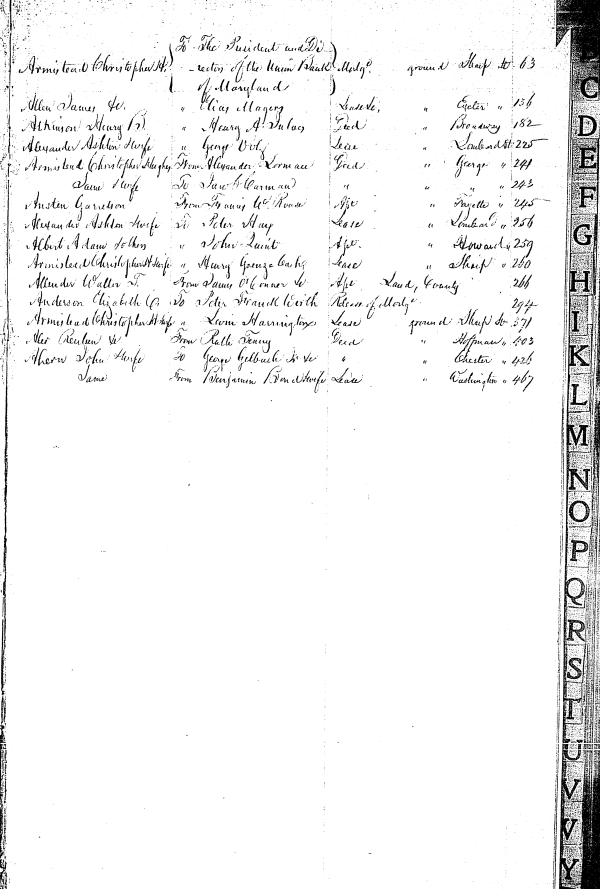 To The President and Di
Armistead Christopher H. -rectors of the Union Bank Mortg⁰. ground Sharp St 63
of Maryland
Allen James &c. " Elias Magers Lease &c, " Exeter " 136
Atkinson Henry B. " Henry A. Deed " Broadway 182
Alexander Ashton &wife " George Volz Lease " Lombard St 225
Armistead Christopher H &wife From Alexander Lorman Deed " George " 241
Same &wife To Carman " " " 243
Austen Garretson From Francis W. Ape. " Fayette " 245
Alexander Ashton &wife To Peter Hay Lease. " Lombard " 256
Albert Adam " John Ape. " Howard " 259
Armistead Christopher H &wife " Henry Lease " Sharp " 260
Allender Walter T. From James O'Connor &c Ape Land, County 266
Anderson Elizabeth C. To Peter Release of Mortg⁰ 294
Armistead Christopher H &wife " Levin Harrington Lease ground Sharp St 371
Aler Reuben &c From Ruth Deed " Hoffman " 403
Ahern John &wife To George Gelbach Jr &c " " Chester " 426
Same From Benjamin Bond &wife Lease " Washington " 467
C
D
E
F
G
H
I
K
L
M
N
O
P
Q
R
S
T
U
V
W
Y